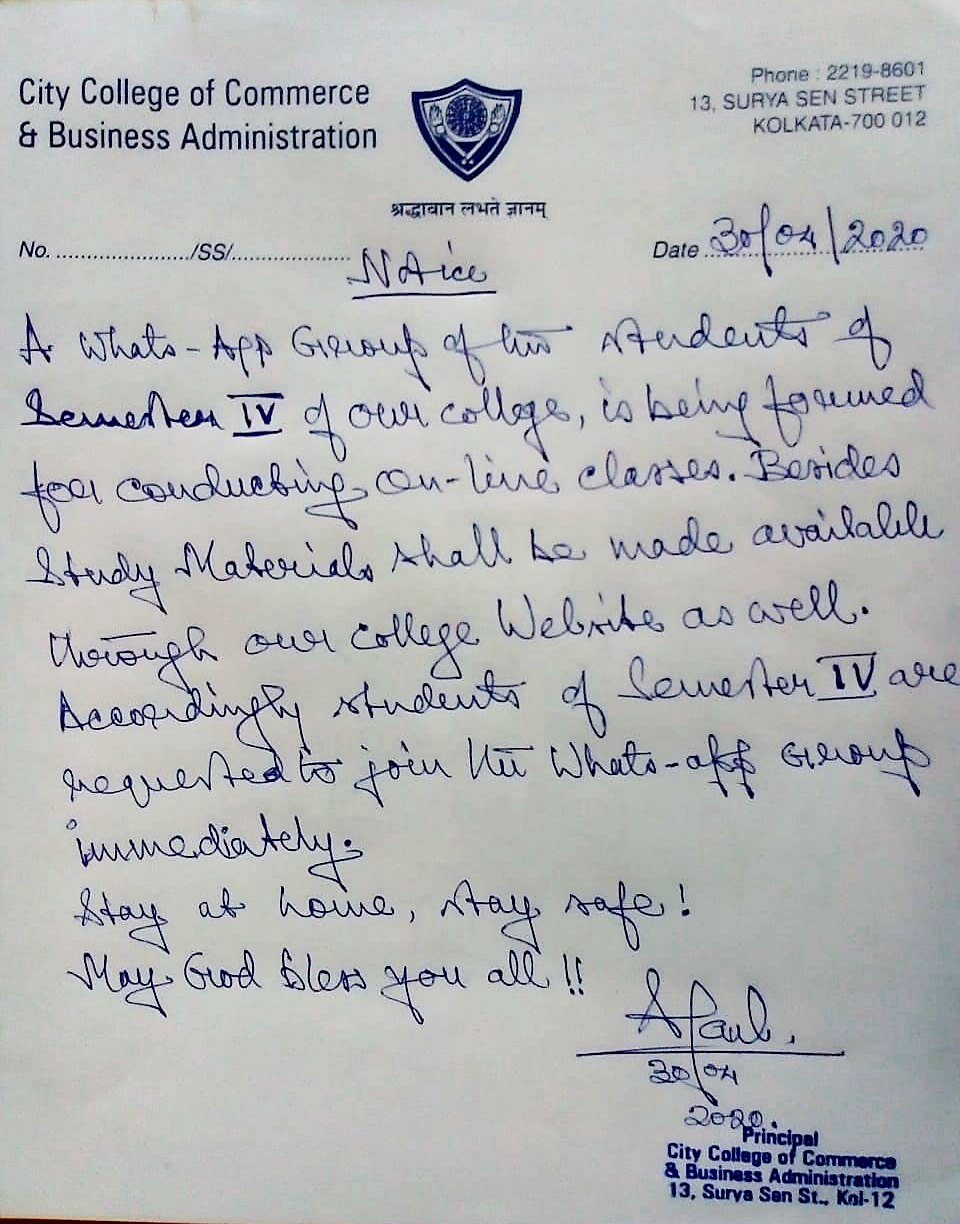 City College of Commerce
& Business Administration
Phone : 2219-8601
13, SURYA SEN STREET
KOLKATA-700 012
श्रद्धावान लभते ज्ञानम्
No. ......................./SS/....................
Date 30/04/2020
Notice
A Whats-App Group of the students of
Semester IV of our college, is being formed
for conducting on-line classes. Besides
Study Materials shall be made available
through our college Website as well.
Accordingly students of Semester IV are
requested to join the Whats-app Group
immediately.
Stay at home, stay safe!
May God bless you all !!
APaul.
30/04
2020.
Principal
City College of Commerce
& Business Administration
13, Surya Sen St., Kol-12